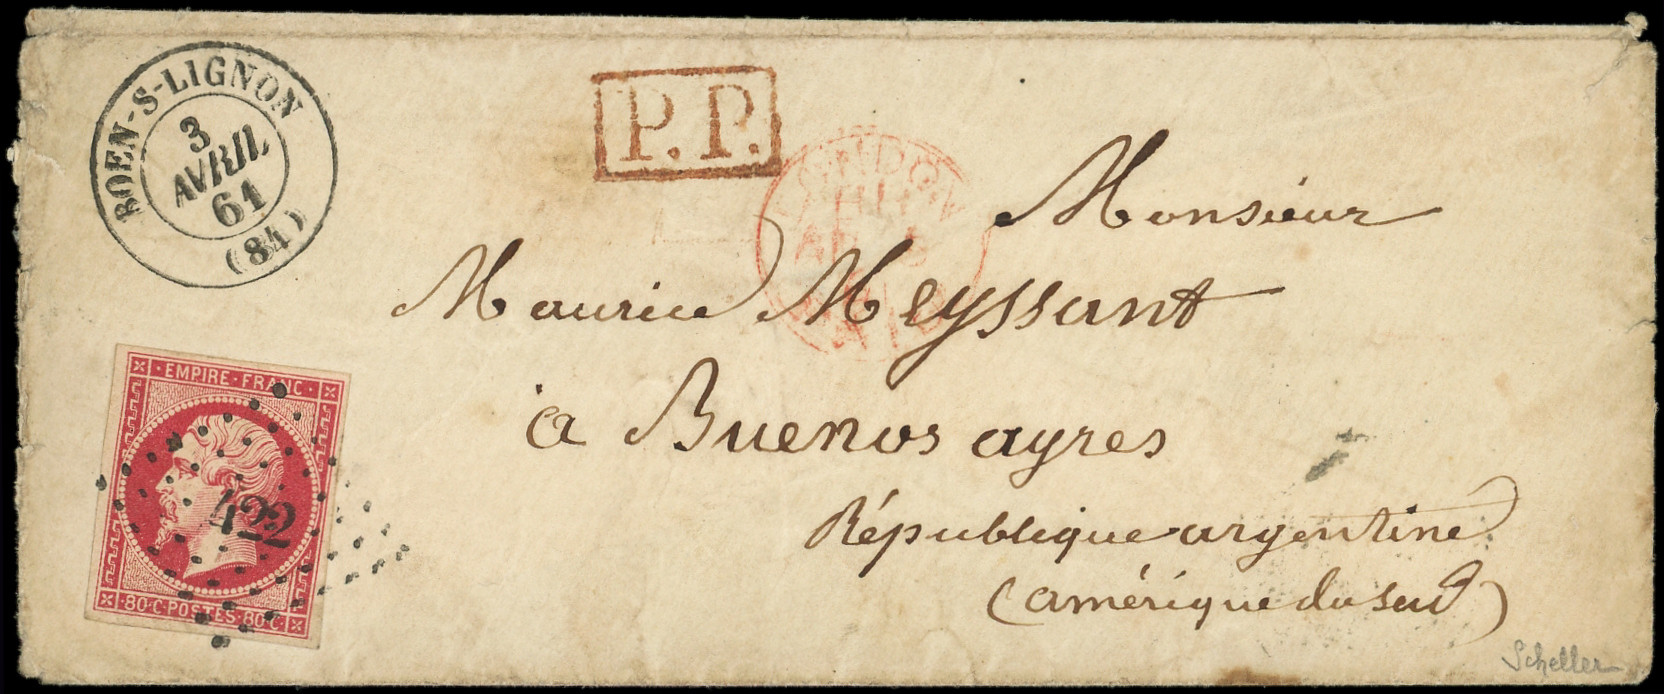 BOEN-S-LIGNON
3
AVRIL
61
(84)
P.P.
LONDON
AP
PAID
Monsieur
Maurice Meyssant
à Buenos ayres
République argentine
(amérique du sud)
EMPIRE · FRANC ·
422
· 80 · C · POSTES · 80 C ·
Scheller